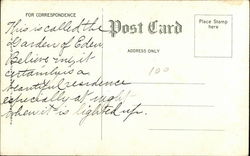 FOR CORRESPONDENCE
Post Card
Place Stamp
here
ADDRESS ONLY
This is called the
Garden of Eden
Believe me, it
certainly is a
beautiful residence
especially at night
when it is lighted up.
100